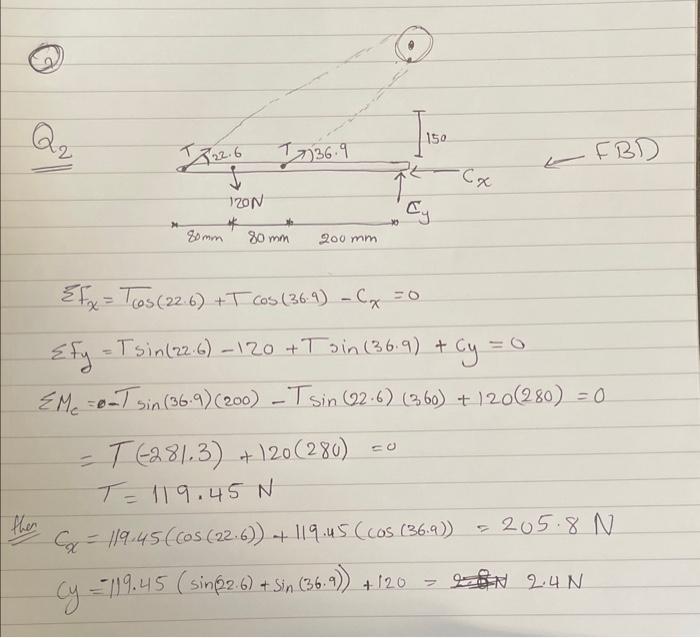 Q2
T 22.6 T 36.9 150 ← FBD
120N Cy Cx
80mm 80 mm 200 mm
ΣFx = Tcos(22.6) + T cos(36.9) - Cx = 0
ΣFy = T sin(22.6) - 120 + T sin(36.9) + Cy = 0
ΣMc = - T sin(36.9)(200) - T sin(22.6)(360) + 120(280) = 0
= T(-281.3) + 120(280) = 0
T = 119.45 N
then Cx = 119.45(cos(22.6)) + 119.45(cos(36.9)) = 205.8 N
Cy = -119.45 (sin(22.6) + sin(36.9)) + 120 = 2.4 N